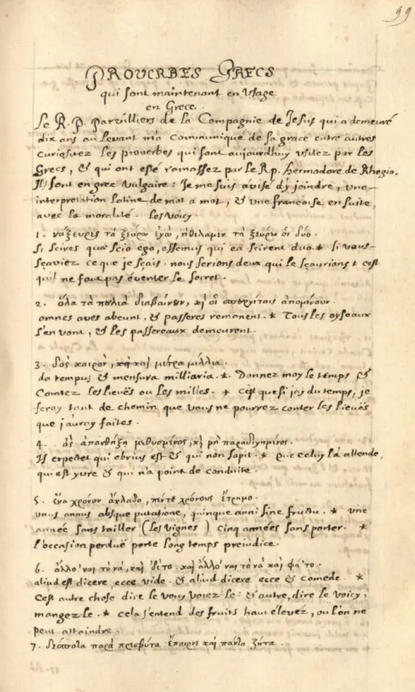 99
PROUERBES GRECS
qui sont maintenant en Vsage
en Grece.
Le R. P. Parvilliers de la Compagnie de Jesus qui a demeuré
dix ans au Levant m'a Communiqué de sa grace entre autres
Curiositez les prouerbes qui sont aujourdhuy vsitez par les
Grecs, & qui ont esté ramassez par le R. p. Hermodore de Rhegio.
Ils sont en grec Vulgaire: Je me suis auisé d'y joindre, vne
interpretation Latine de mot a mot, & vne francoise en suite,
avec la moralité. Les voicy
1. τὰ ἐγὼ, οἱ δύο.
si scires quae scio ego, essemus qui ea scirent duo. * si vous
sçaviez ce que je sçais. nous serions deux qui le sçaurions * c'est
qu'il ne faut pas éventer le secret.
2. ὅλα τὰ πουλιὰ , κὶ οἱ
omnes aves abeunt, & passeres remanent. * Tous les oyseaux
s'en vont, & les passereaux demeurent.
3. δός καιρὸν, καὶ μέτρα μίλλια.
da tempus & mensura milliaria. * Donnez moy le temps &
Comtez les lieuës ou les milles. * C'est que si j'ay du temps, je
feray tant de chemin que vous ne pourrez conter les lieuës
que j'auray faites.
4. μεθυσμένος, κὶ μὴ
Is expectet qui ebrius est & qui non sapit. * Que celuy là attende,
qui est yure & qui n'a point de conduite.
5. ἕνα χρόνον , πέντε χρόνους
vnus annus absque putatione, quinque anni sine fructu. * vne
année sans tailler (les vignes) cinq années sans porter. *
l'occasion perduë porte long temps prejudice.
6. ἄλλο καὶ ἄλλο
aliud est dicere ecce vide. & aliud dicere ecce & comede *
C'est autre chose dire le vous voiez le: & autre, dire le voicy,
mangez le. * cela s'entend des fruits haut elevez, ou l'on ne
peut atteindre.
7. παρὰ καὶ